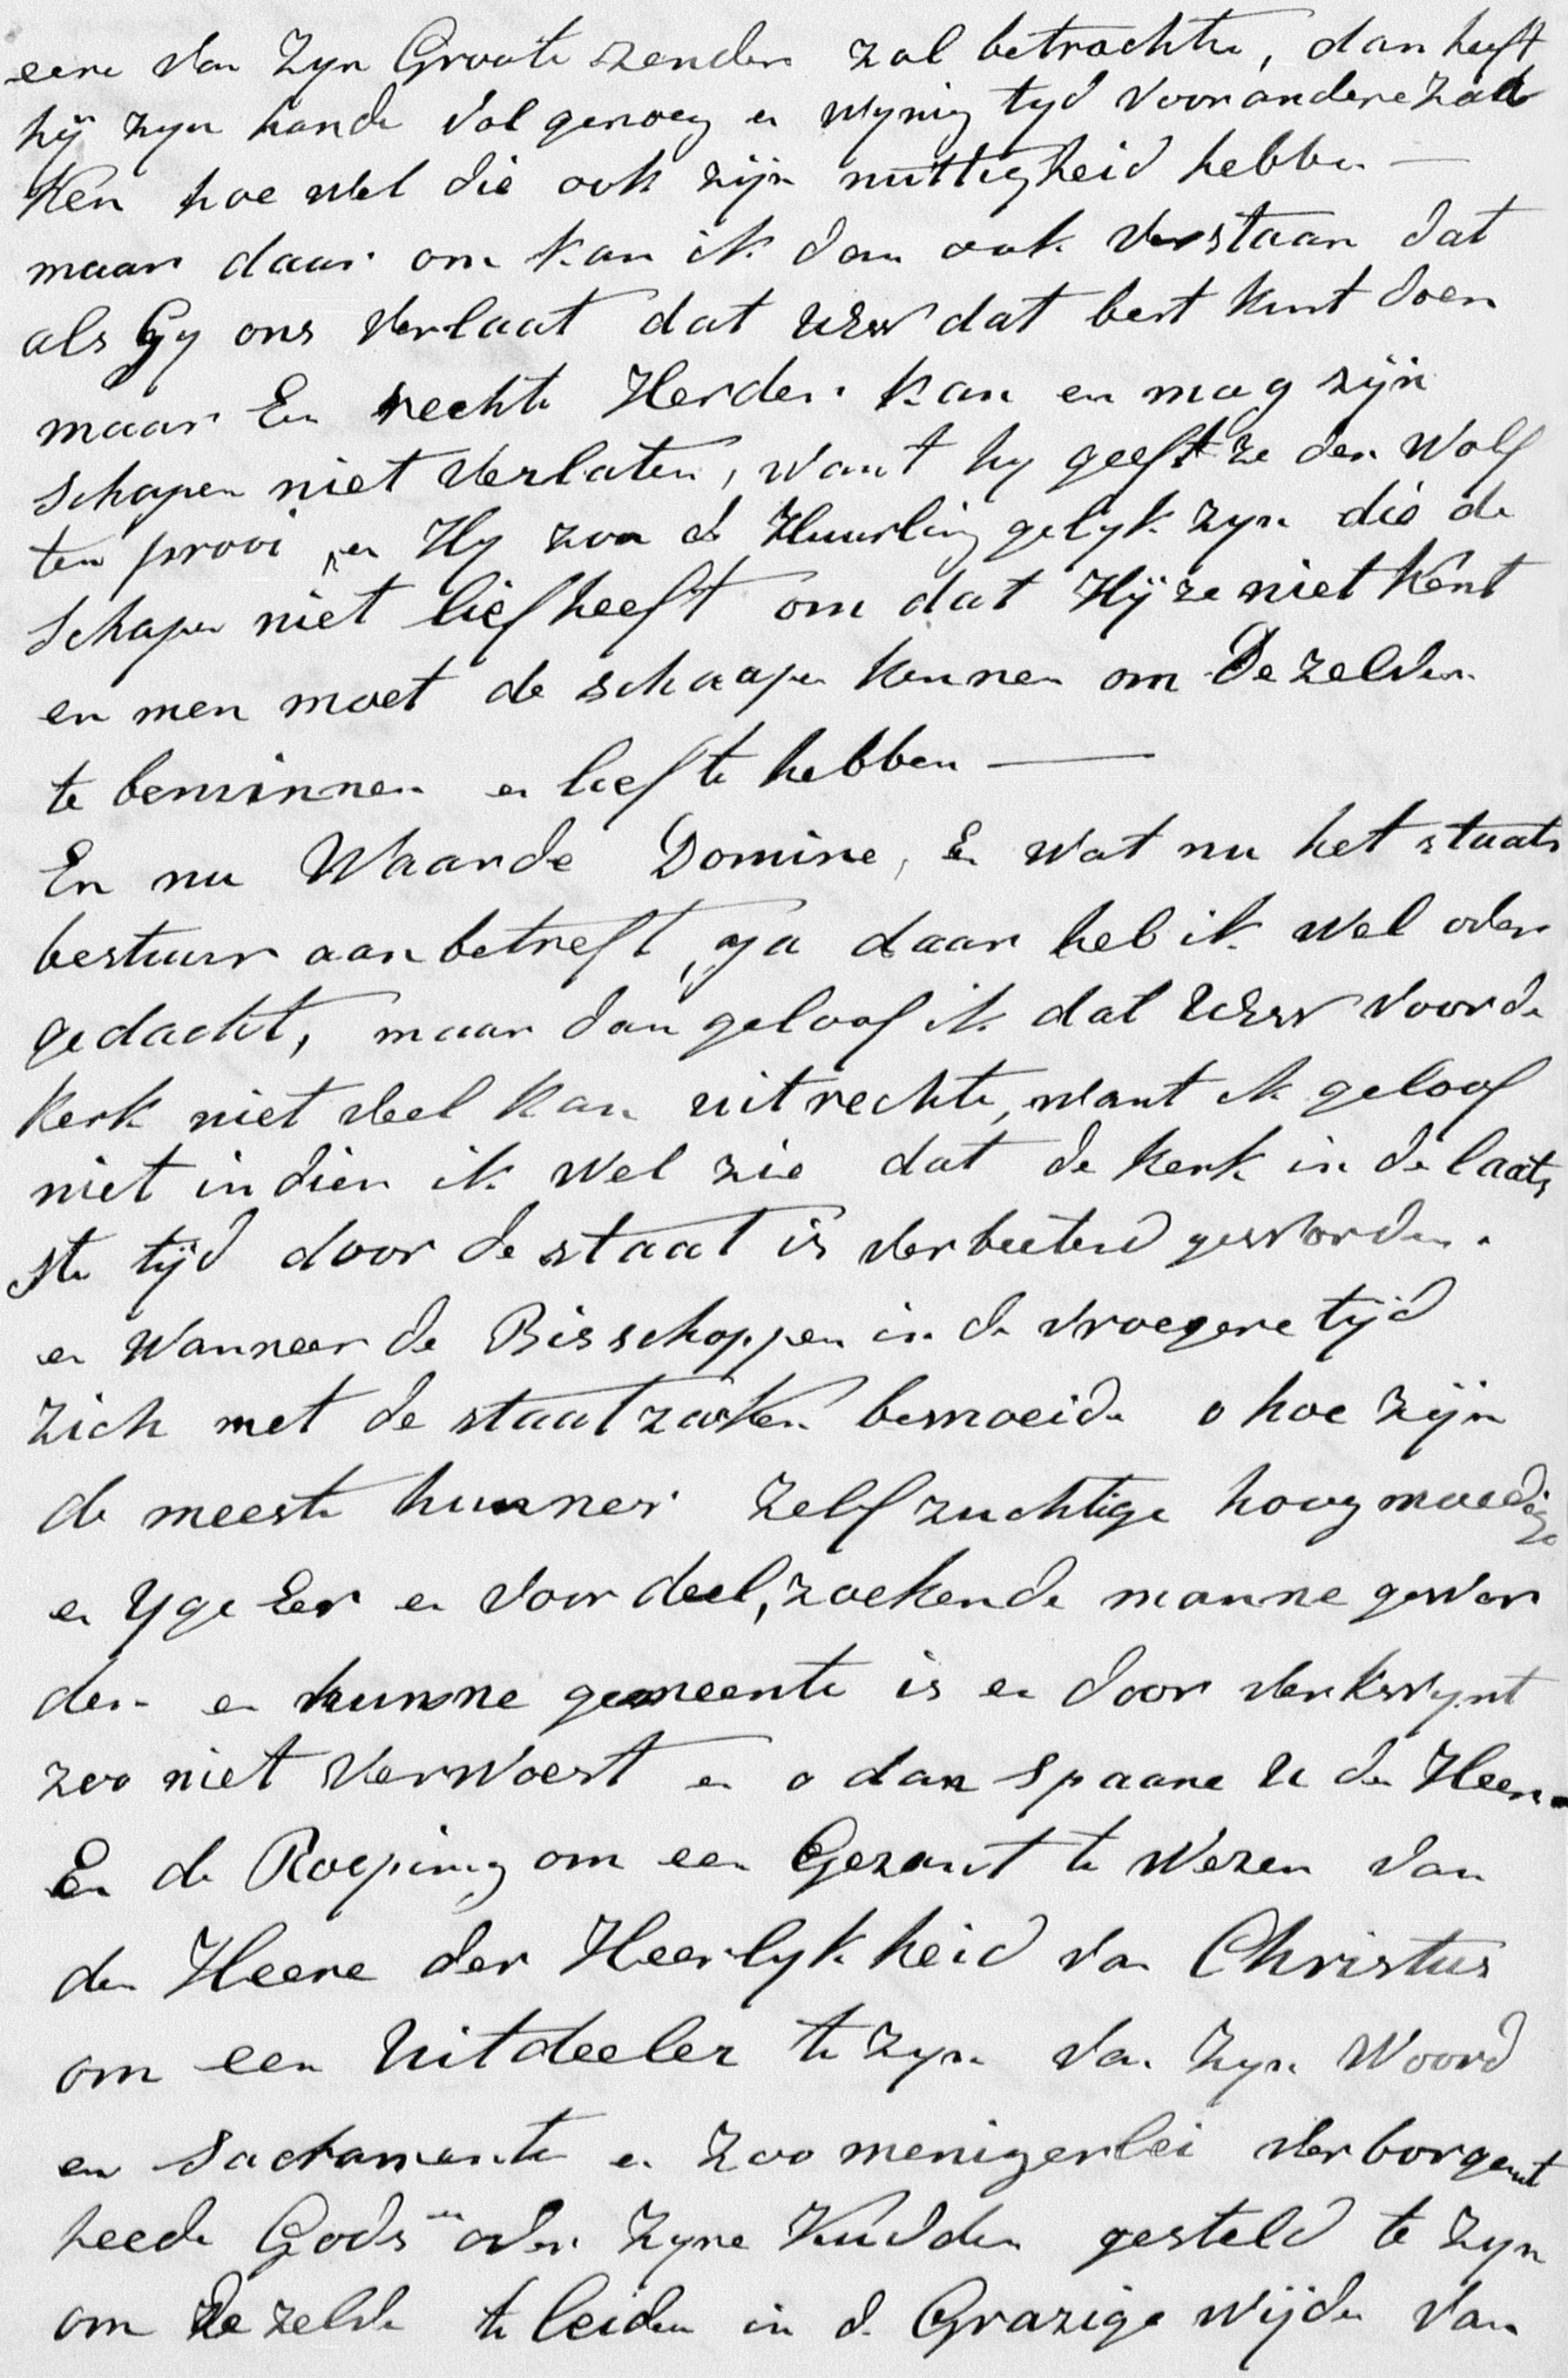 eere van Zyn Groote zender zal betrachte, dan heeft
hij zyn hande vol genoeg en wynig tyd voor andere zaa
ken hoe wel die ook zijn nuttigheid hebben —
maar daar om kan ik dan ook verstaan dat
als Gy ons verlaat dat UEw dat best kunt doen
maar En rechte Herder kan en mag zijn
schapen niet verlaten, want hy geeft ze den Wolf
ten prooi, en Hy zoo de Huurling gelyk zyn die de
schapen niet lief heeft om dat Hij ze niet kent
en men moet de schaapen kennen om De zelden
te beminnen en lief te hebben —
En nu Waarde Domine, En wat nu het staats
bestuur aan betreft, ja daar heb ik wel over
gedacht, maar dan geloof ik dat UEw voor de
kerk niet veel kan uitrechte, want ik geloof
niet in dien ik wel zie dat de kerk in de laats
ste tijd door de staat is verbeeterd geworden.
en Wanneer de Bisschoppen in de vroegere tijd
zich met de staat zaken bemoeide o hoe zijn
de meeste hunner zelf zuchtige hoogmoedige
en yge Eer en voordeel, zoekende manne gewor
den en hunne gemeente is er door verkwynt
zoo niet verwoest en o dan spaare U de Heer.
En de Roeping om een Gezant te wezen van
den Heere der Heerlykheid van Christus
om een Uitdeeler te zyn van zyn Woord
en Sacramente en zoo menigerlei verborgent
heede Gods en over zyne Kudden gesteld te zyn
om De zelde te leiden in d. Grazige wijde van